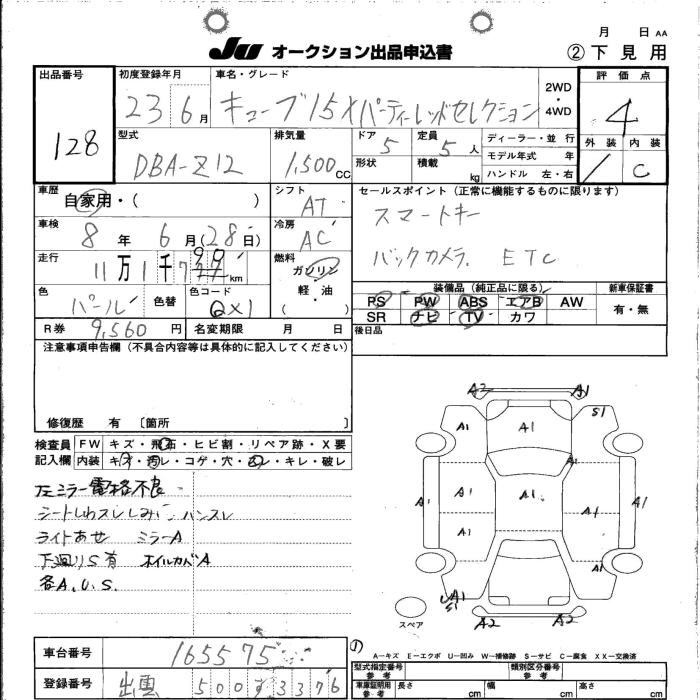 月 日 AA
JU オークション出品申込書 ②下見用
出品番号 初度登録年月 車名・グレード 2WD・4WD 評価点
128 23 6月 キューブ15X パーティーレッドセレクション 4
型式 排気量 ドア 定員 ディーラー・並行 外装 内装
DBA-Z12 1,500CC 5 5人 モデル年式 年 / C
形状 積載 kg ハンドル 左・右
車歴 シフト セールスポイント(正常に機能するものに限ります)
自家用・( ) AT スマートキー
車検 冷房
8年 6月(28日) AC バックカメラ. ETC
走行 燃料
11万1千7 km ガソリン
軽・油
( )
装備品(純正品に限る) 新車保証書
色 色替 色コード PS PW ABS エアB AW 有・無
パール QX1 SR ナビ TV カワ
R券 9,560円 名変期限 月 日 後日品
注意事項申告欄(不具合内容等は具体的に記入してください)
修復歴 有 〔箇所 〕
検査員 FW キズ・飛石・ヒビ割・リペア跡・X要
記入欄 内装 キズ・汚レ・コゲ・穴・スレ・キレ・破レ
左ミラー電格不良
シートしわスレしみ ハンスレ
ライトあせ ミラーA
下廻りS有 ホイルカバA
各A.U.S.
A2 A1
A1 A1 S1
A1
A1 A1 A1 A1 A1
A1 A1
A1 S1 A2 A2
スペア
A-キズ E-エクボ U-凹み W-補修跡 S-サビ C-腐食 XX-交換済
車台番号 165575
型式指定番号 参考 類別区分番号 参考
登録番号 出雲 500 す 3376
車庫証明用 参考 長さ cm 幅 cm 高さ cm